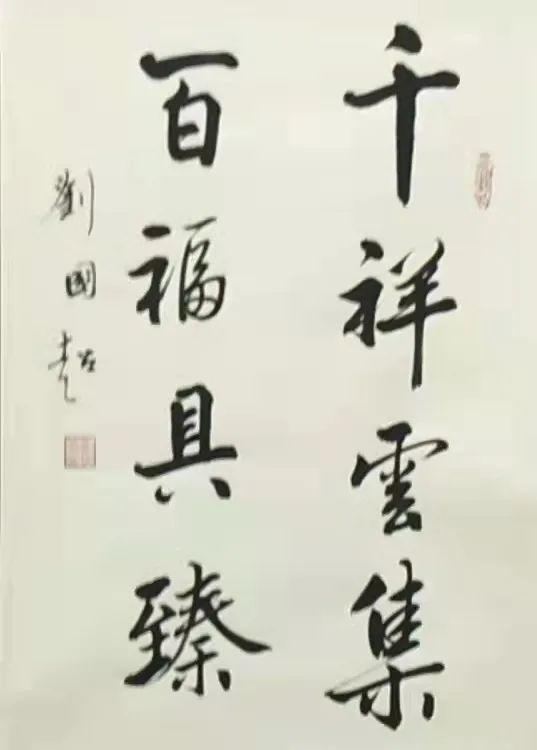 千祥雲集
百福具臻
劉國超